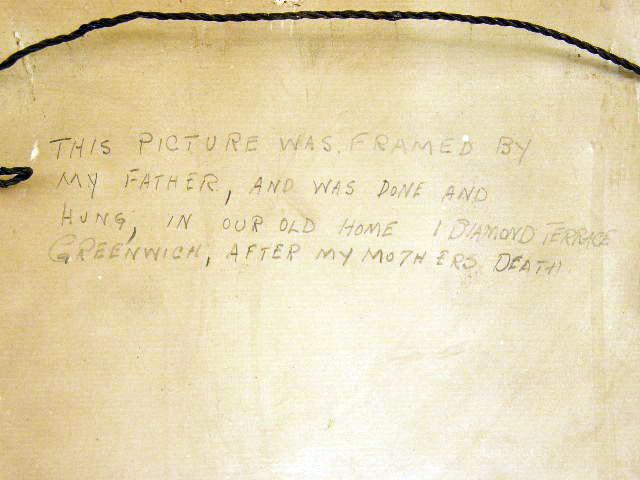 THIS PICTURE WAS FRAMED BY
MY FATHER, AND WAS DONE AND
HUNG, IN OUR OLD HOME 1 DIAMOND TERRACE
GREENWICH, AFTER MY MOTHERS DEATH